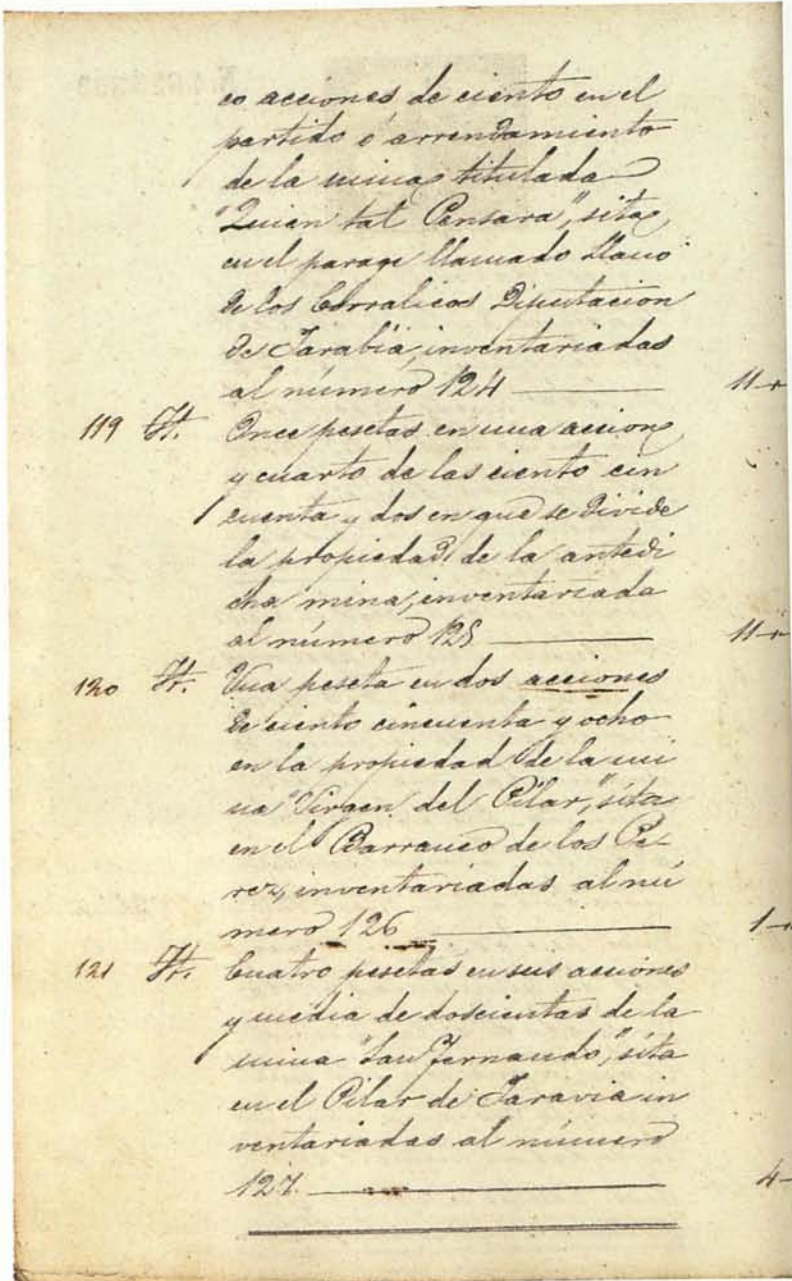 co acciones de ciento en el
partido ó arrendamiento
de la mina titulada
"Quien tal Pensara", sita
en el parage llamado Llano
de los Corralicos Diputacion
de Jarabia, inventariadas
al número 124 11
119 It. Once pesetas en una accion
y cuarto de las ciento cin
cuenta y dos en que se divide
la propiedad de la antedi
cha mina, inventariada
al número 125 11
120 It. Una peseta en dos acciones
de ciento cincuenta y ocho
en la propiedad de la mi
na "Virgen del Pilar", sita
en el Barranco de los Pe-
rez, inventariadas al nú
mero 126 1
121 It. Cuatro pesetas en seis acciones
y media de doscientas de la
mina "San Fernando", sita
en el Pilar de Jaravia in
ventariadas al número
127. 4